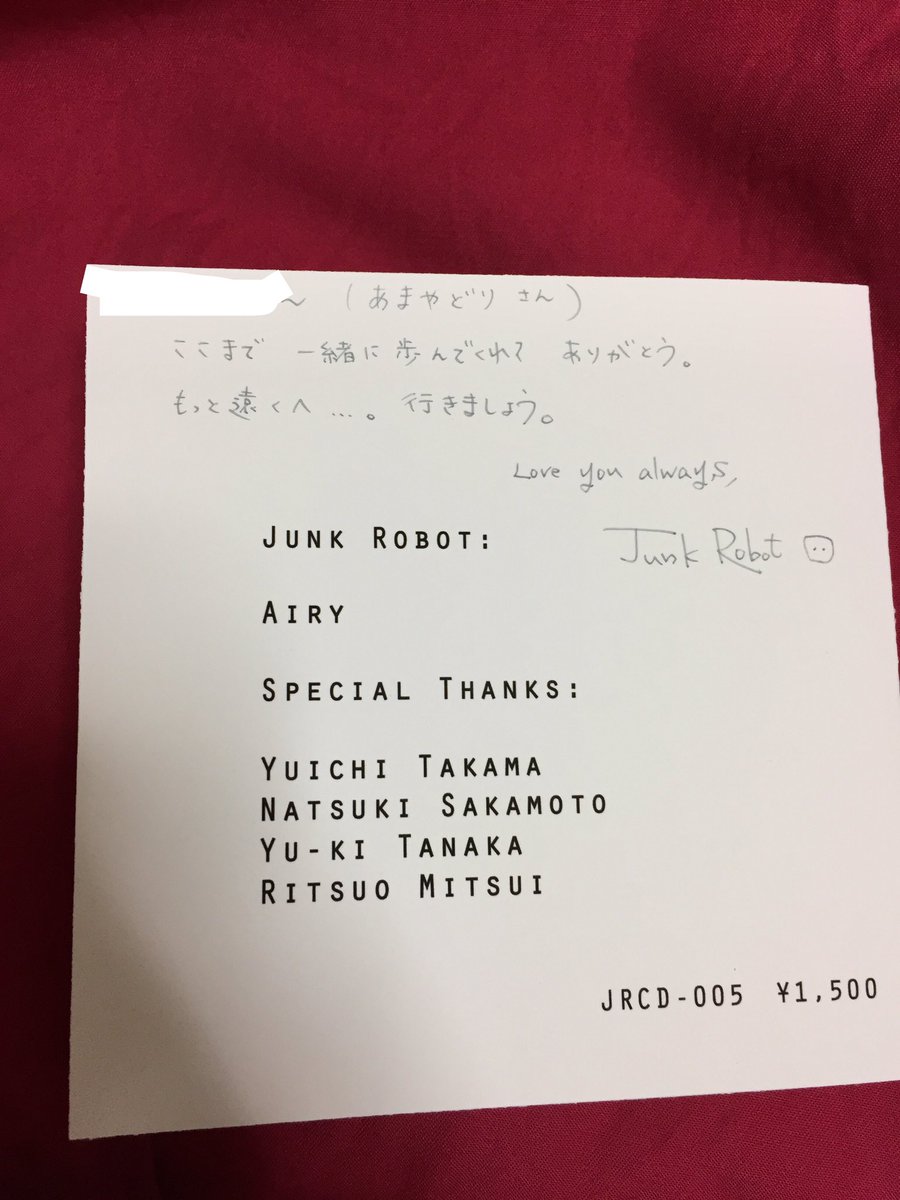 ～ (あまやどり さん)
ここまで 一緒に歩んでくれて ありがとう。
もっと遠くへ…。行きましょう。
Love you always,
JUNK ROBOT:
Junk Robot
AIRY
SPECIAL THANKS:
YUICHI TAKAMA
NATSUKI SAKAMOTO
YU-KI TANAKA
RITSUO MITSUI
JRCD-005 ¥1,500